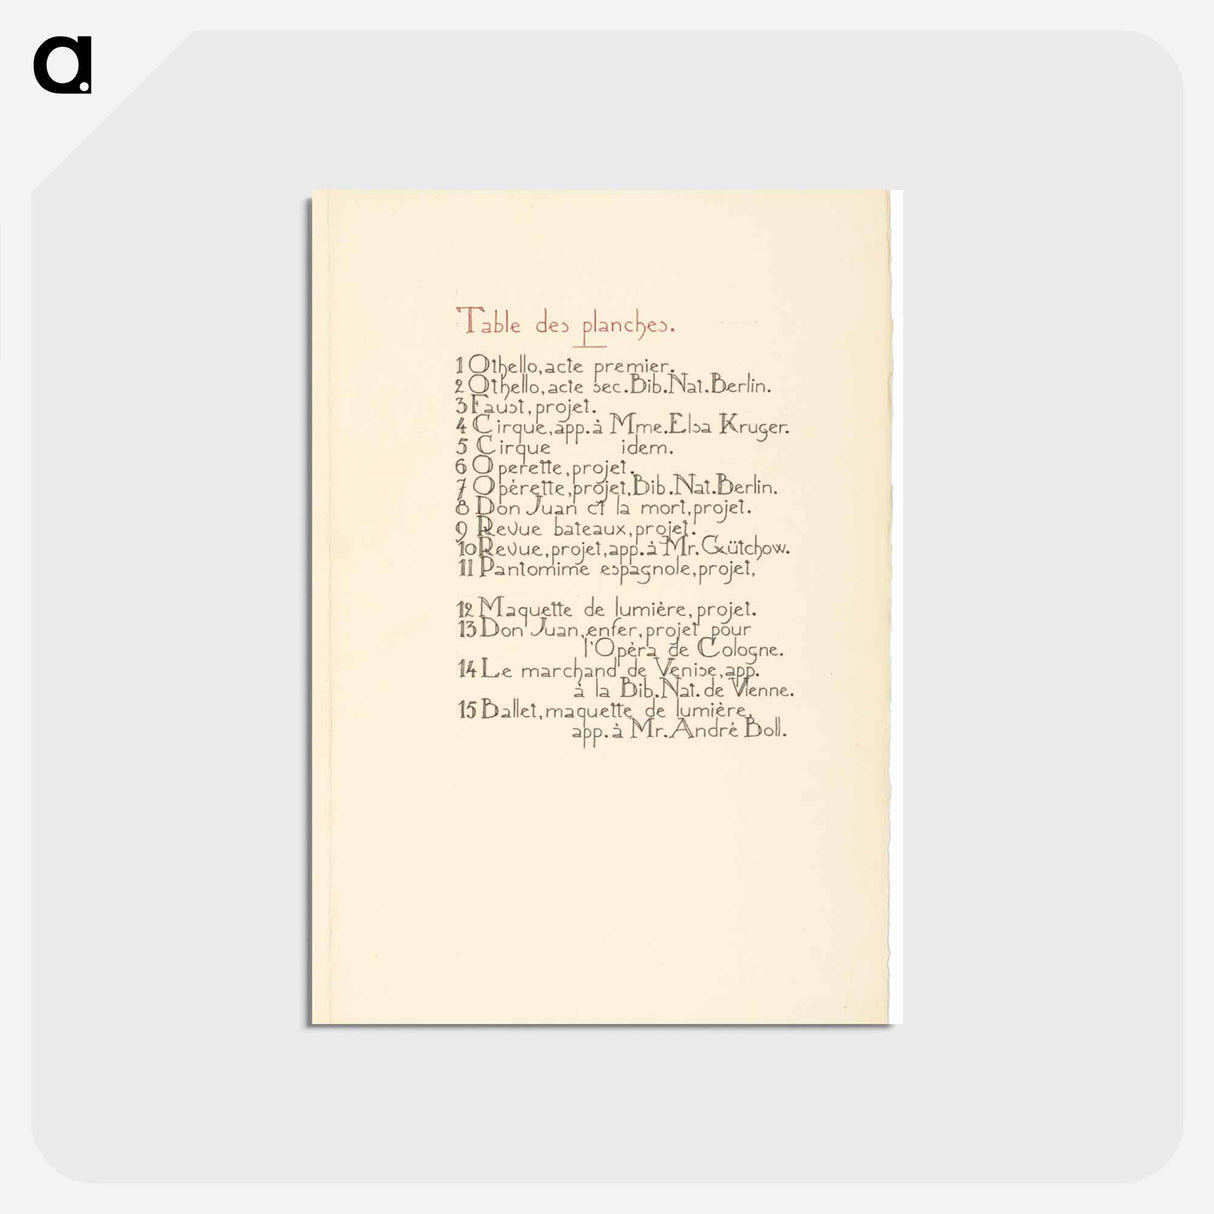 a.
Table des planches.
1 Othello, acte premier.
2 Othello, acte sec. Bib. Nat. Berlin.
3 Faust, projet.
4 Cirque, app. à Mme. Elsa Kruger.
5 Cirque idem.
6 Operette, projet.
7 Opèrette, projet, Bib. Nat. Berlin.
8 Don Juan et la mort, projet.
9 Revue bateaux, projet.
10 Revue, projet, app. à Mr. Gütchow.
11 Pantomime espagnole, projet,
12 Maquette de lumière, projet.
13 Don Juan, enfer, projet pour
l'Opèra de Cologne.
14 Le marchand de Venise, app.
à la Bib. Nat. de Vienne.
15 Ballet, maquette de lumière,
app. à Mr. Andrè Boll.